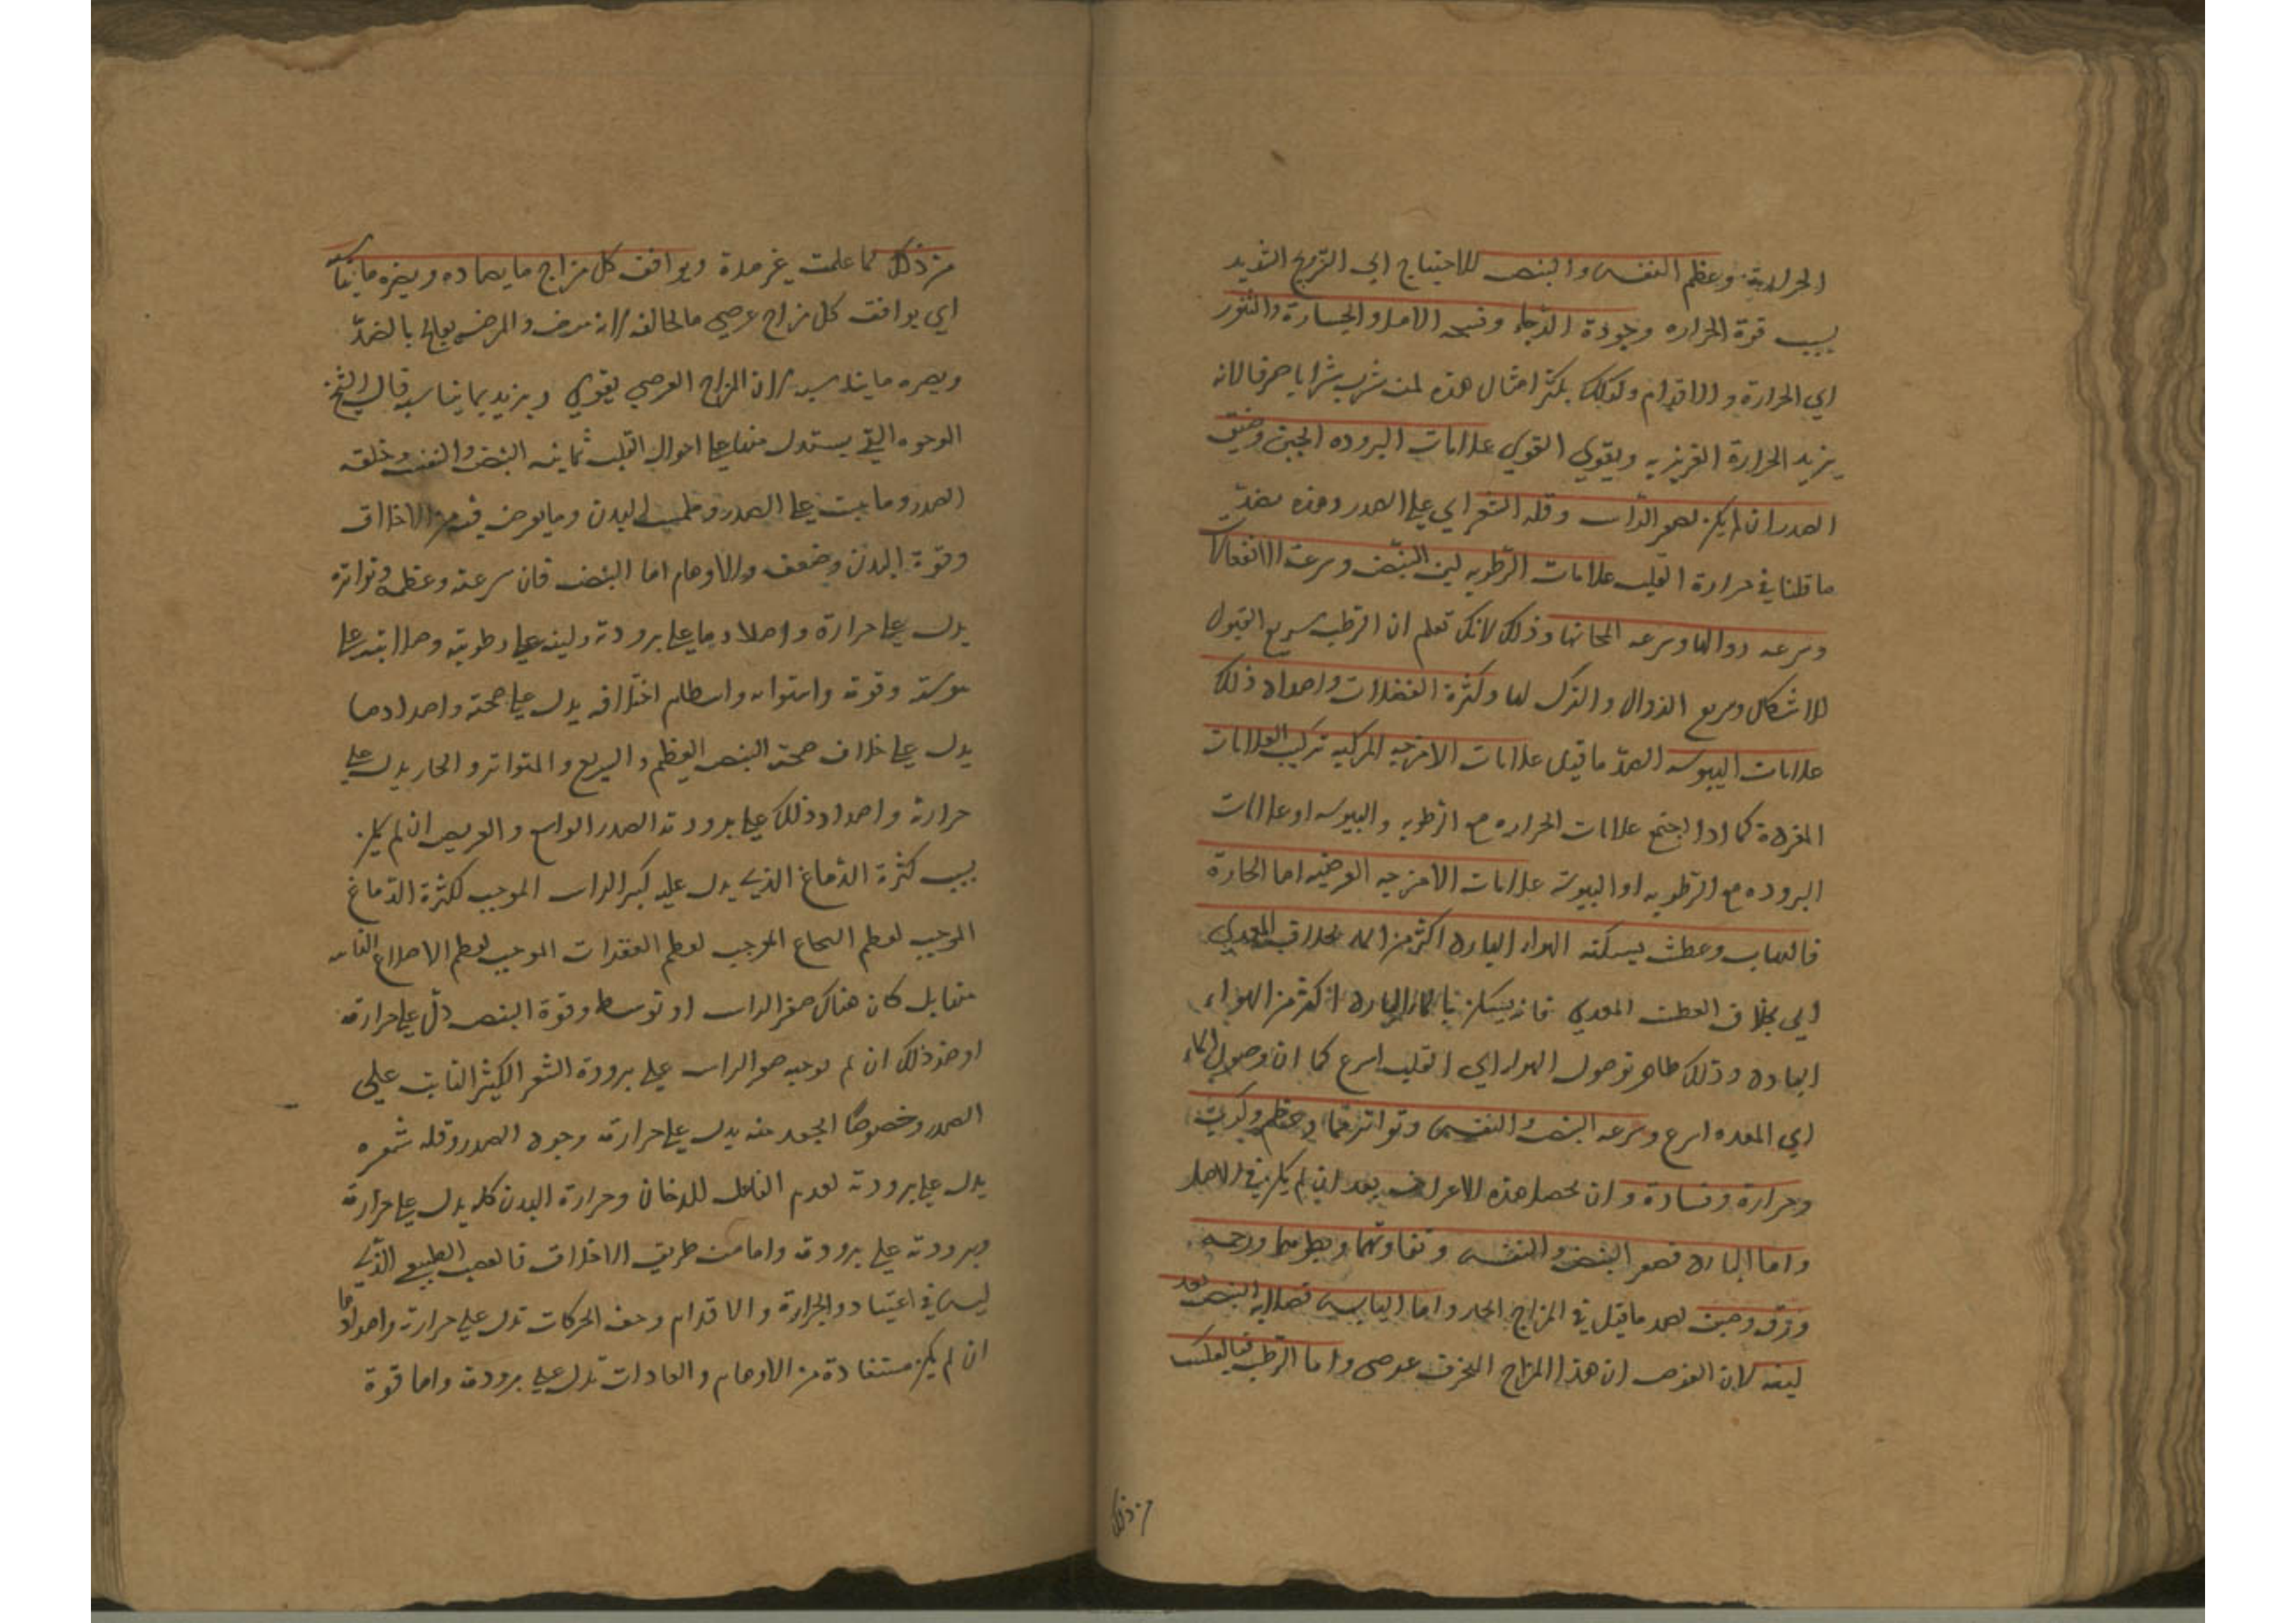 الحرارية وعظم النفس والنبض للاحتياج الى الترويح الشديد
بسبب قوة الحراره وجودة الرجاء وفسحه الامل والجسارة والتهور
اي الحرارة والاقدام ولذلك يكثر امثال هذه لمن شرب شرابا صرفا لانه
يزيد الحرارة الغريزيه ويقوي القوي علامات البروده الجبن وضيق
الصدر ان لم يكن لصغر الراس وقله الشعر اي على الصدر وهذه بضد
ما قلنا في حرارة القلب علامات الرطوبه لين النبض وسرعة الانفعالات
وسرعه زوالها وسرعه وذلك لانك تعلم ان الرطب سريع القبول
للاشكال وسريع الزوال والترك لها وكثرة الفضلات واضداد ذلك
علامات اليبوسه الضد ما قيل علامات الامزجه المركبه تركيب العلامات
المفردة كما اذا اجتمع علامات الحراره مع الرطوبه واليبوسه او علامات
البروده مع الرطوبه او اليبوسة علامات الامزجيه العرضيه اما الحارة
فالتهاب وعطش يسكنه الهواء البارد اكثر من الماء بخلاف المعدي
اي بخلاف العطش المعدي فانه يسكن بالماء البارد اكثر من الهواء
البارد وذلك ظاهر لوصول الهواء الى القلب اسرع كما ان وصول الماء
اي المعده اسرع وسرعه النبض والنفس وتواترهما وعظم وكرب
وحرارة وفسادة وان يحصل هذه الاعراض بعد ان لم يكن في الاصل
واما البارد فصغر النبض والنفس وتفاوتهما وبطؤهما ورحمه
ورقه وجبن بضد ما قيل في المزاج الحار واما اليابس فصلابه النبض بعد
لينه لان الغرض ان هذا المزاج المنحرف عرضي واما الرطب فبالعكس
من ذلك
من ذلك لما علمت غير مرة ويوافق كل مزاج ما يضاده ويضره ما يناسبه
اي يوافق كل مزاج عرضي ما يخالفه لانه مرض والمرض يعالج بالضد
ويضره ما يناسبه لان المزاج العرضي يقوي ويزيد بما يناسبه قال الشيخ
الوجوه التي يستدل منها على احوال القلب ثمانيه النبض والنفس وخلقه
الصدر وما ينبت على الصدر وملمس البدن وما يعرض فيه من الاخلاق
وقوة البدن وضعفه والاوهام اما النبض فان سرعته وعظمه وتواتره
يدل على حرارة واضدادها على برودته ولينه على رطوبته وصلابته على
يبوسته وقوته واستوائه وانتظام اختلافه يدل على صحته واضدادها
يدل على خلاف صحته النبض العظيم والسريع والمتواتر والحار يدل على
حرارته واضداد ذلك على برودته الصدر الواسع والعريض ان لم يكن
بسبب كثرة الدماغ الذي يدل عليه كبر الراس الموجب لكثرة الدماغ
الموجب لعظم النخاع الموجب لعظم الفقرات الموجب لعظم الاضلاع النابته
منها بل كان هناك صغر الراس او توسط وقوة النبض دل على حرارته
او ضد ذلك ان لم يوجبه صغر الراس على برودة الشعر الكثير النابت على
الصدر وخصوصا الجعد منه يدل على حرارته وجرد الصدر وقله شعره
يدل على برودته لعدم الفاعل للدخان وحرارة البدن كله يدل على حرارته
وبرودته على برودته واما من طريق الاخلاق فالغضب الطبيعي الذي
ليس في اعتياد والجراة والاقدام وخفه الحركات تدل على حرارته واضدادها
ان لم يكن مستفادة من الاوهام والعادات تدل على برودته واما قوة